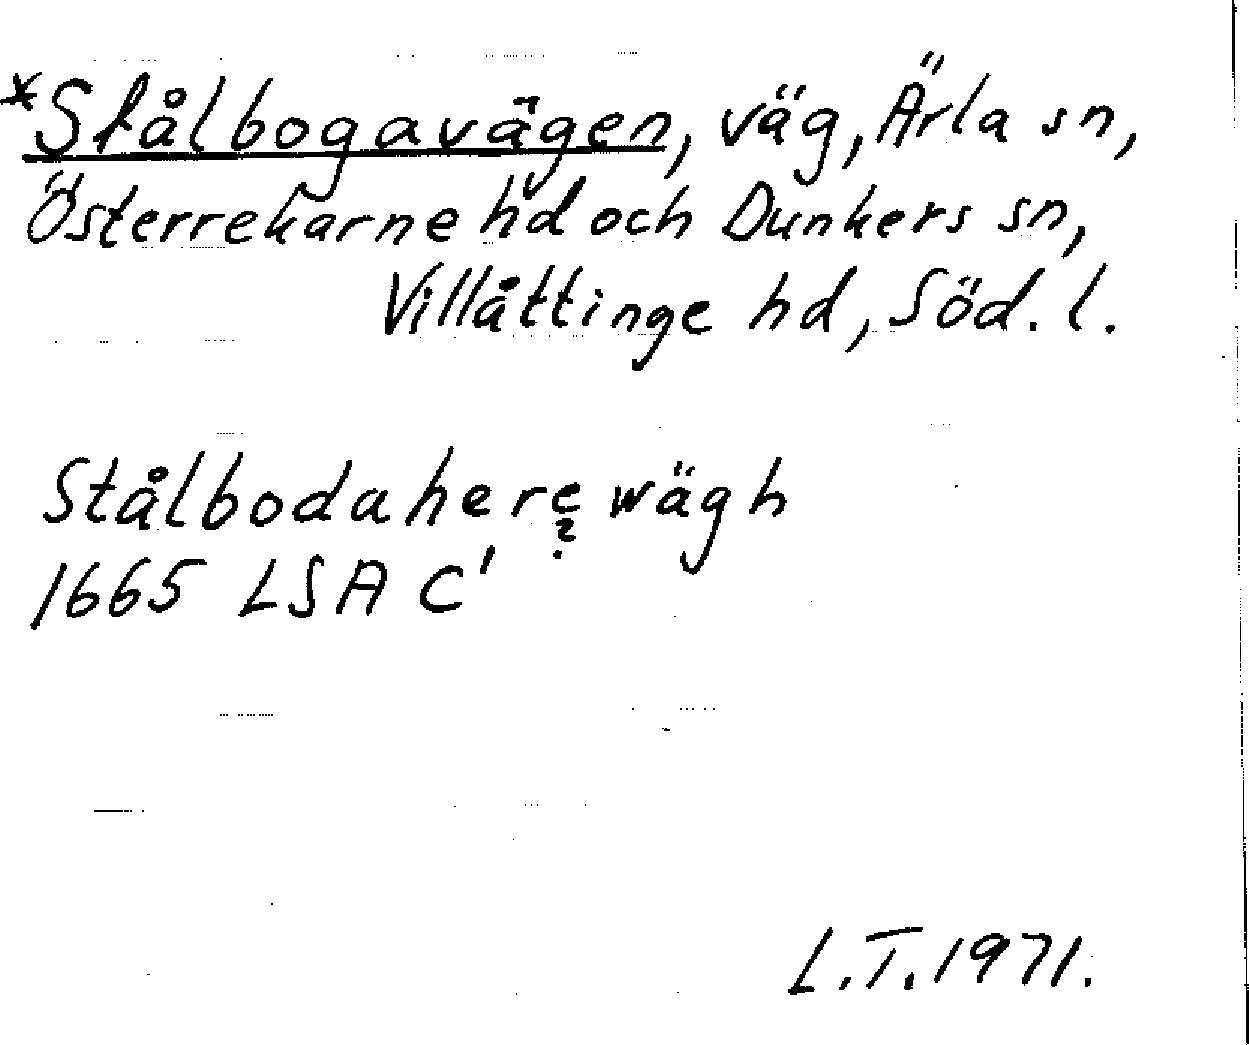 *Stålbogavägen, väg, Ärla sn,
Österrekarne hd och Dunkers sn,
Villåttinge hd, Söd. l.
Stålbodahere wägh
?
1665 LSA C'
L.T. 1971.